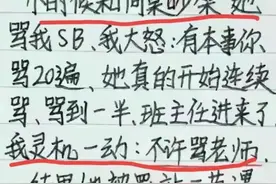 小的候和同桌吵架她
骂我SB、我大怒:有本事你
骂20遍、她真的开始连续
骂、骂到一半、班主任进来了
我灵机一动:不许骂老师
结果她被罢站一节课